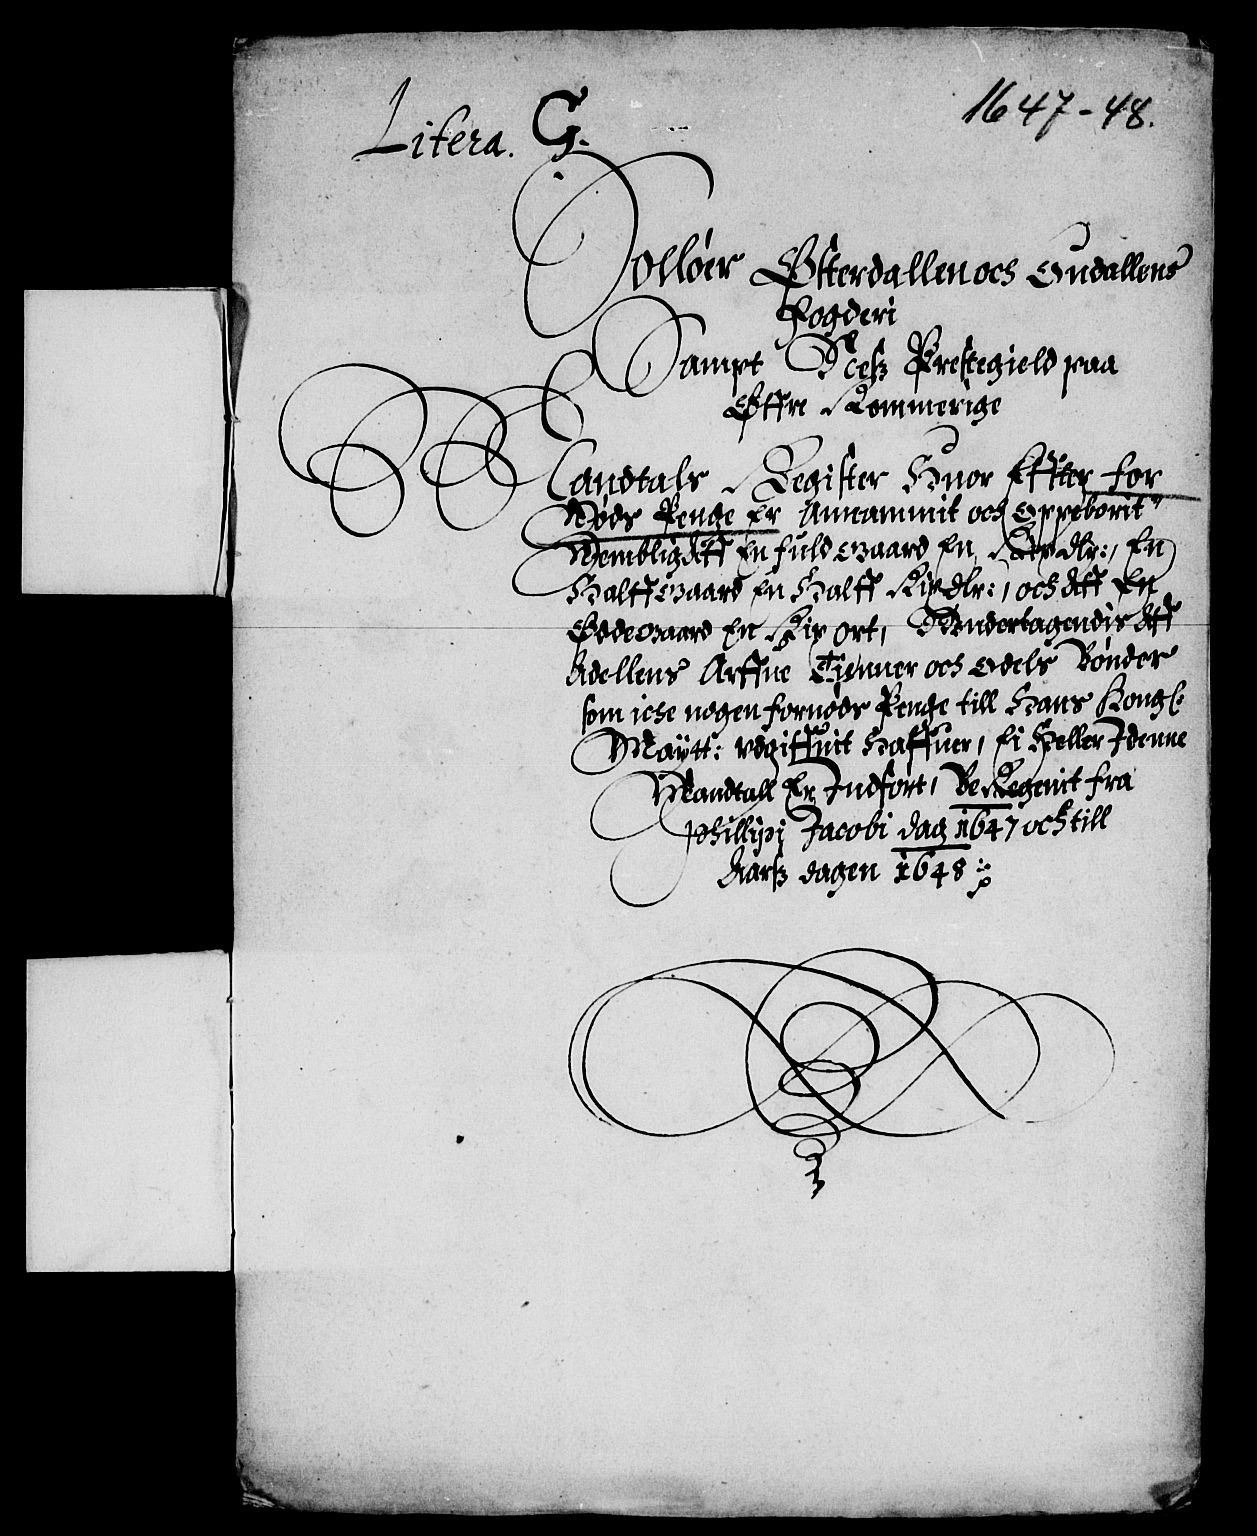 1647-48.
Litera. G.
Solløer Østerdallen och Gudallens
Fogderi
Sampt Næss Prestegield paa
Øffre Rommerige
Mandtals Register Huor Effter for
Nøds Penge Er Annammit och Oppeborit
Nemblig Aff En fuld Gaard En Rix dlr:, En
Halff Gaard En Halff Rix dlr:, och Aff En
Øddegaard En Rix ort, Undertagendis Aff
Adellens Arffue Tienner och Odels Bønder
som iche nogen fornøds Penge till Hans Kongl:
Maÿtt: Udgiffuit Haffuer, Ei Heller I denne
Mandtall Er Indført, Beregnit fra
Phillipi Jacobi dag 1647 och till
Aarss dagen 1648